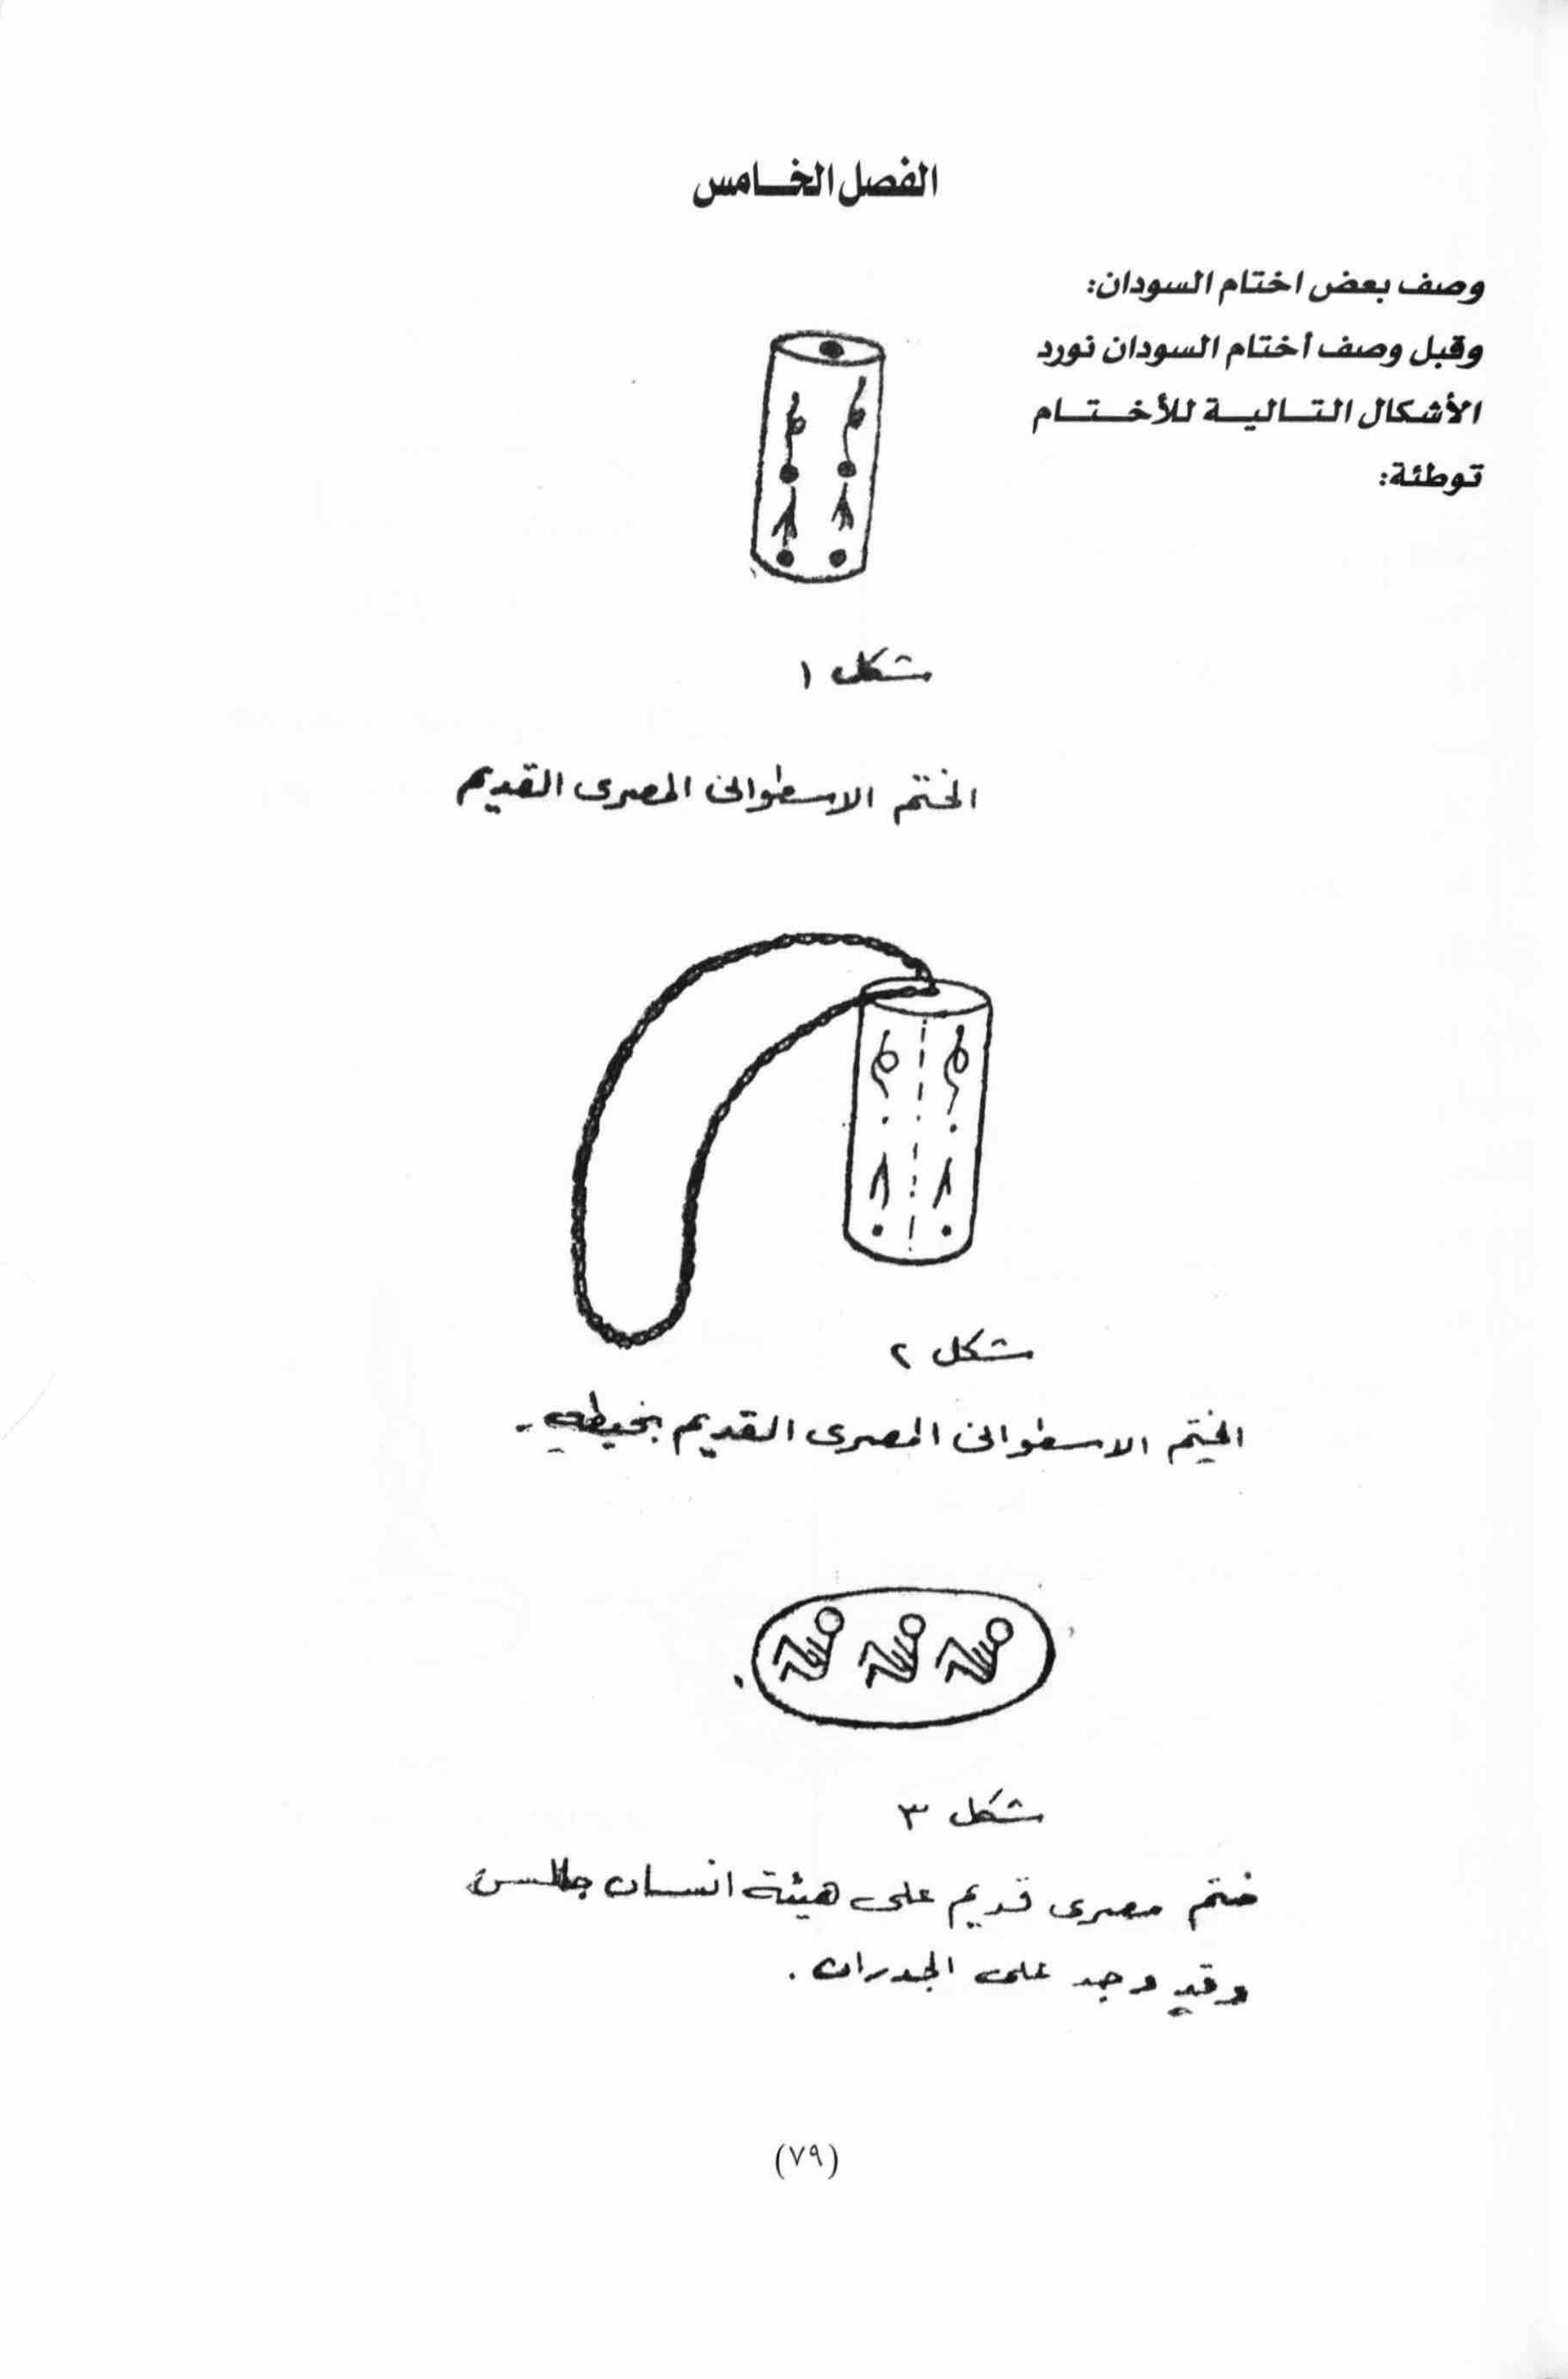 الفصل الخامس
وصف بعض اختام السودان:
وقبل وصف أختام السودان نورد
الأشكال التالية للأختام
توطئة:
شكل ١
الختم الاسطوانى المصرى القديم
شكل ٢
الختم الاسطوانى المصرى القديم بخيطه -
شكل ٣
ختم مصرى قديم على هيئة انسان جالس
وقد وجد على الجدران .
(٧٩)